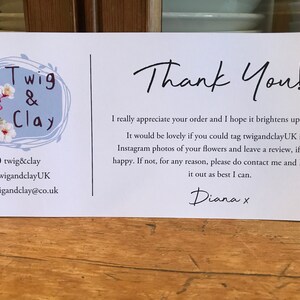 Twig
&
Clay
twig&clay
wigandclayUK
igandclay@co.uk
Thank You!
I really appreciate your order and I hope it brightens up
It would be lovely if you could tag twigandclayUK
Instagram photos of your flowers and leave a review, if
happy. If not, for any reason, please do contact me and
it out as best I can.
Diana x